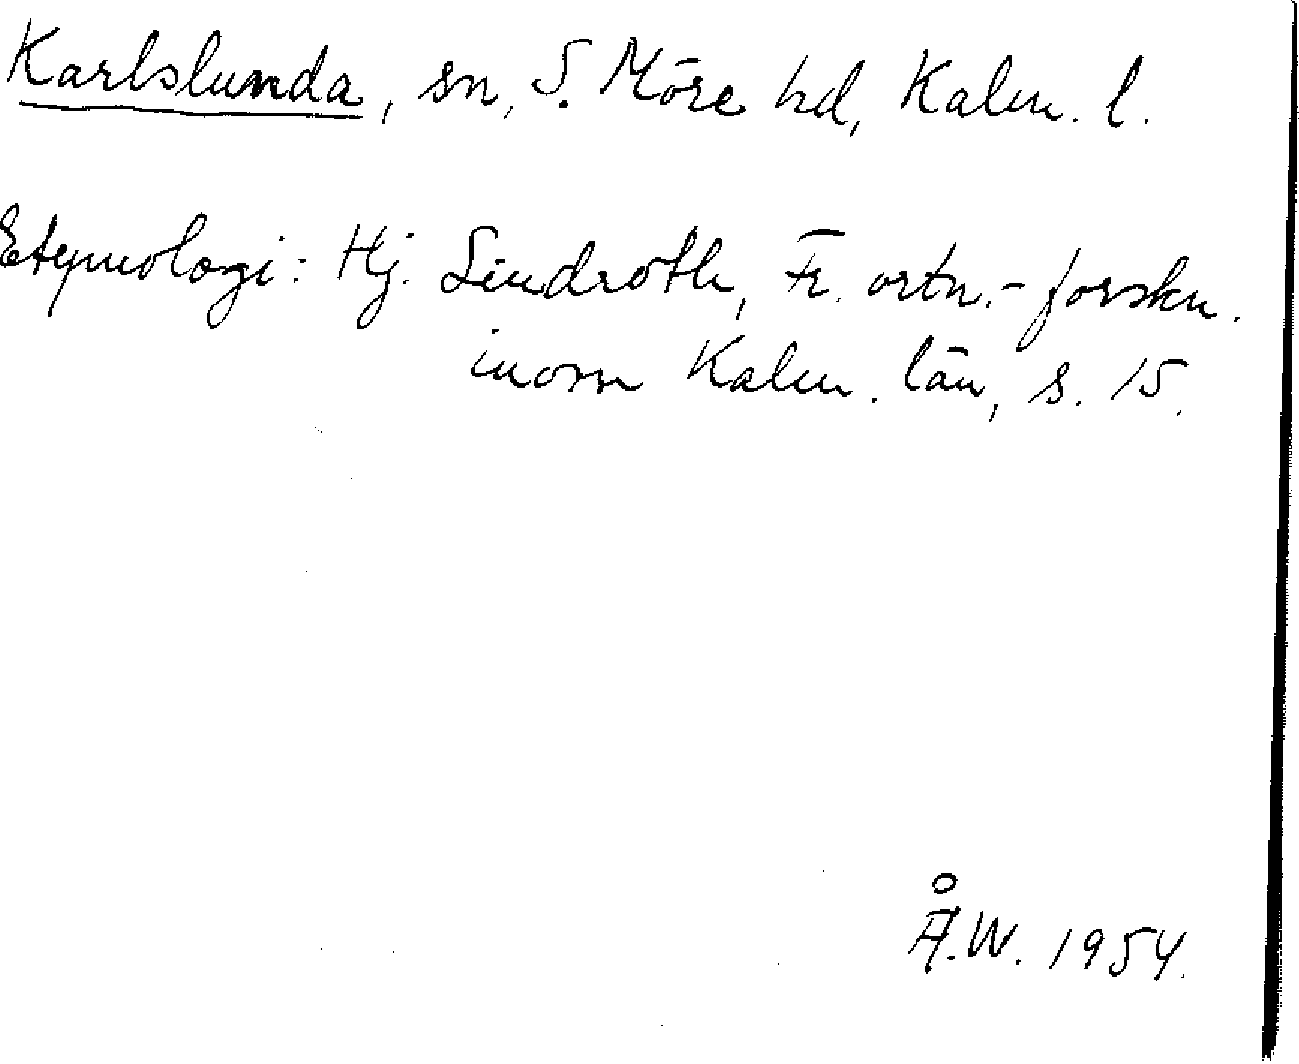 Karlslunda, sn, S. Möre hd, Kalm. l.
Etymologi: Hj. Lindroth, Fr. ortn.-forskn.
inom Kalm. län, s. 15.
Å.W. 1954.